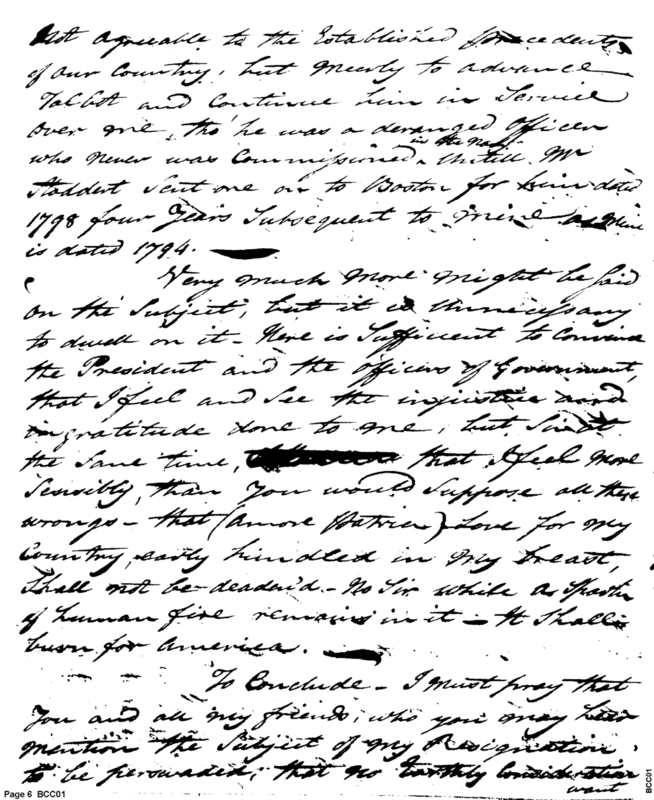 Not agreeable to the Established precedents
of our Country, but meerly to advance
Talbot and Continue him in Service
over me, tho' he was a deranged officer
in the Navy
who never was Commissioned ^ Untill Mr
Stoddert Sent one on to Boston for him dated
1798 four Years Subsequent to mine as Mine
is dated 1794. —
Very much More might be Said
on the Subject, but it is Unnecessary
to dwell on it – Here is Sufficient to Convince
the President and the officers of Government,
that I feel and See the injustice and
ingratitude done to me, but Sir at
the Same time, that I feel More
Sensibly, than You would Suppose all these
wrongs – that (Amore Patria) Love for My
Country, early kindled in My breast,
Shall not be deaden'd – No Sir while a Spark
of human fire remains in it – It Shall
burn for America. —
To Conclude – I must pray that
You and all my friends, who you may hear
mention the Subject of my Resignation,
to be perswaded, that no Earthly Consideration
want
Page 6 BCC01
BCC01